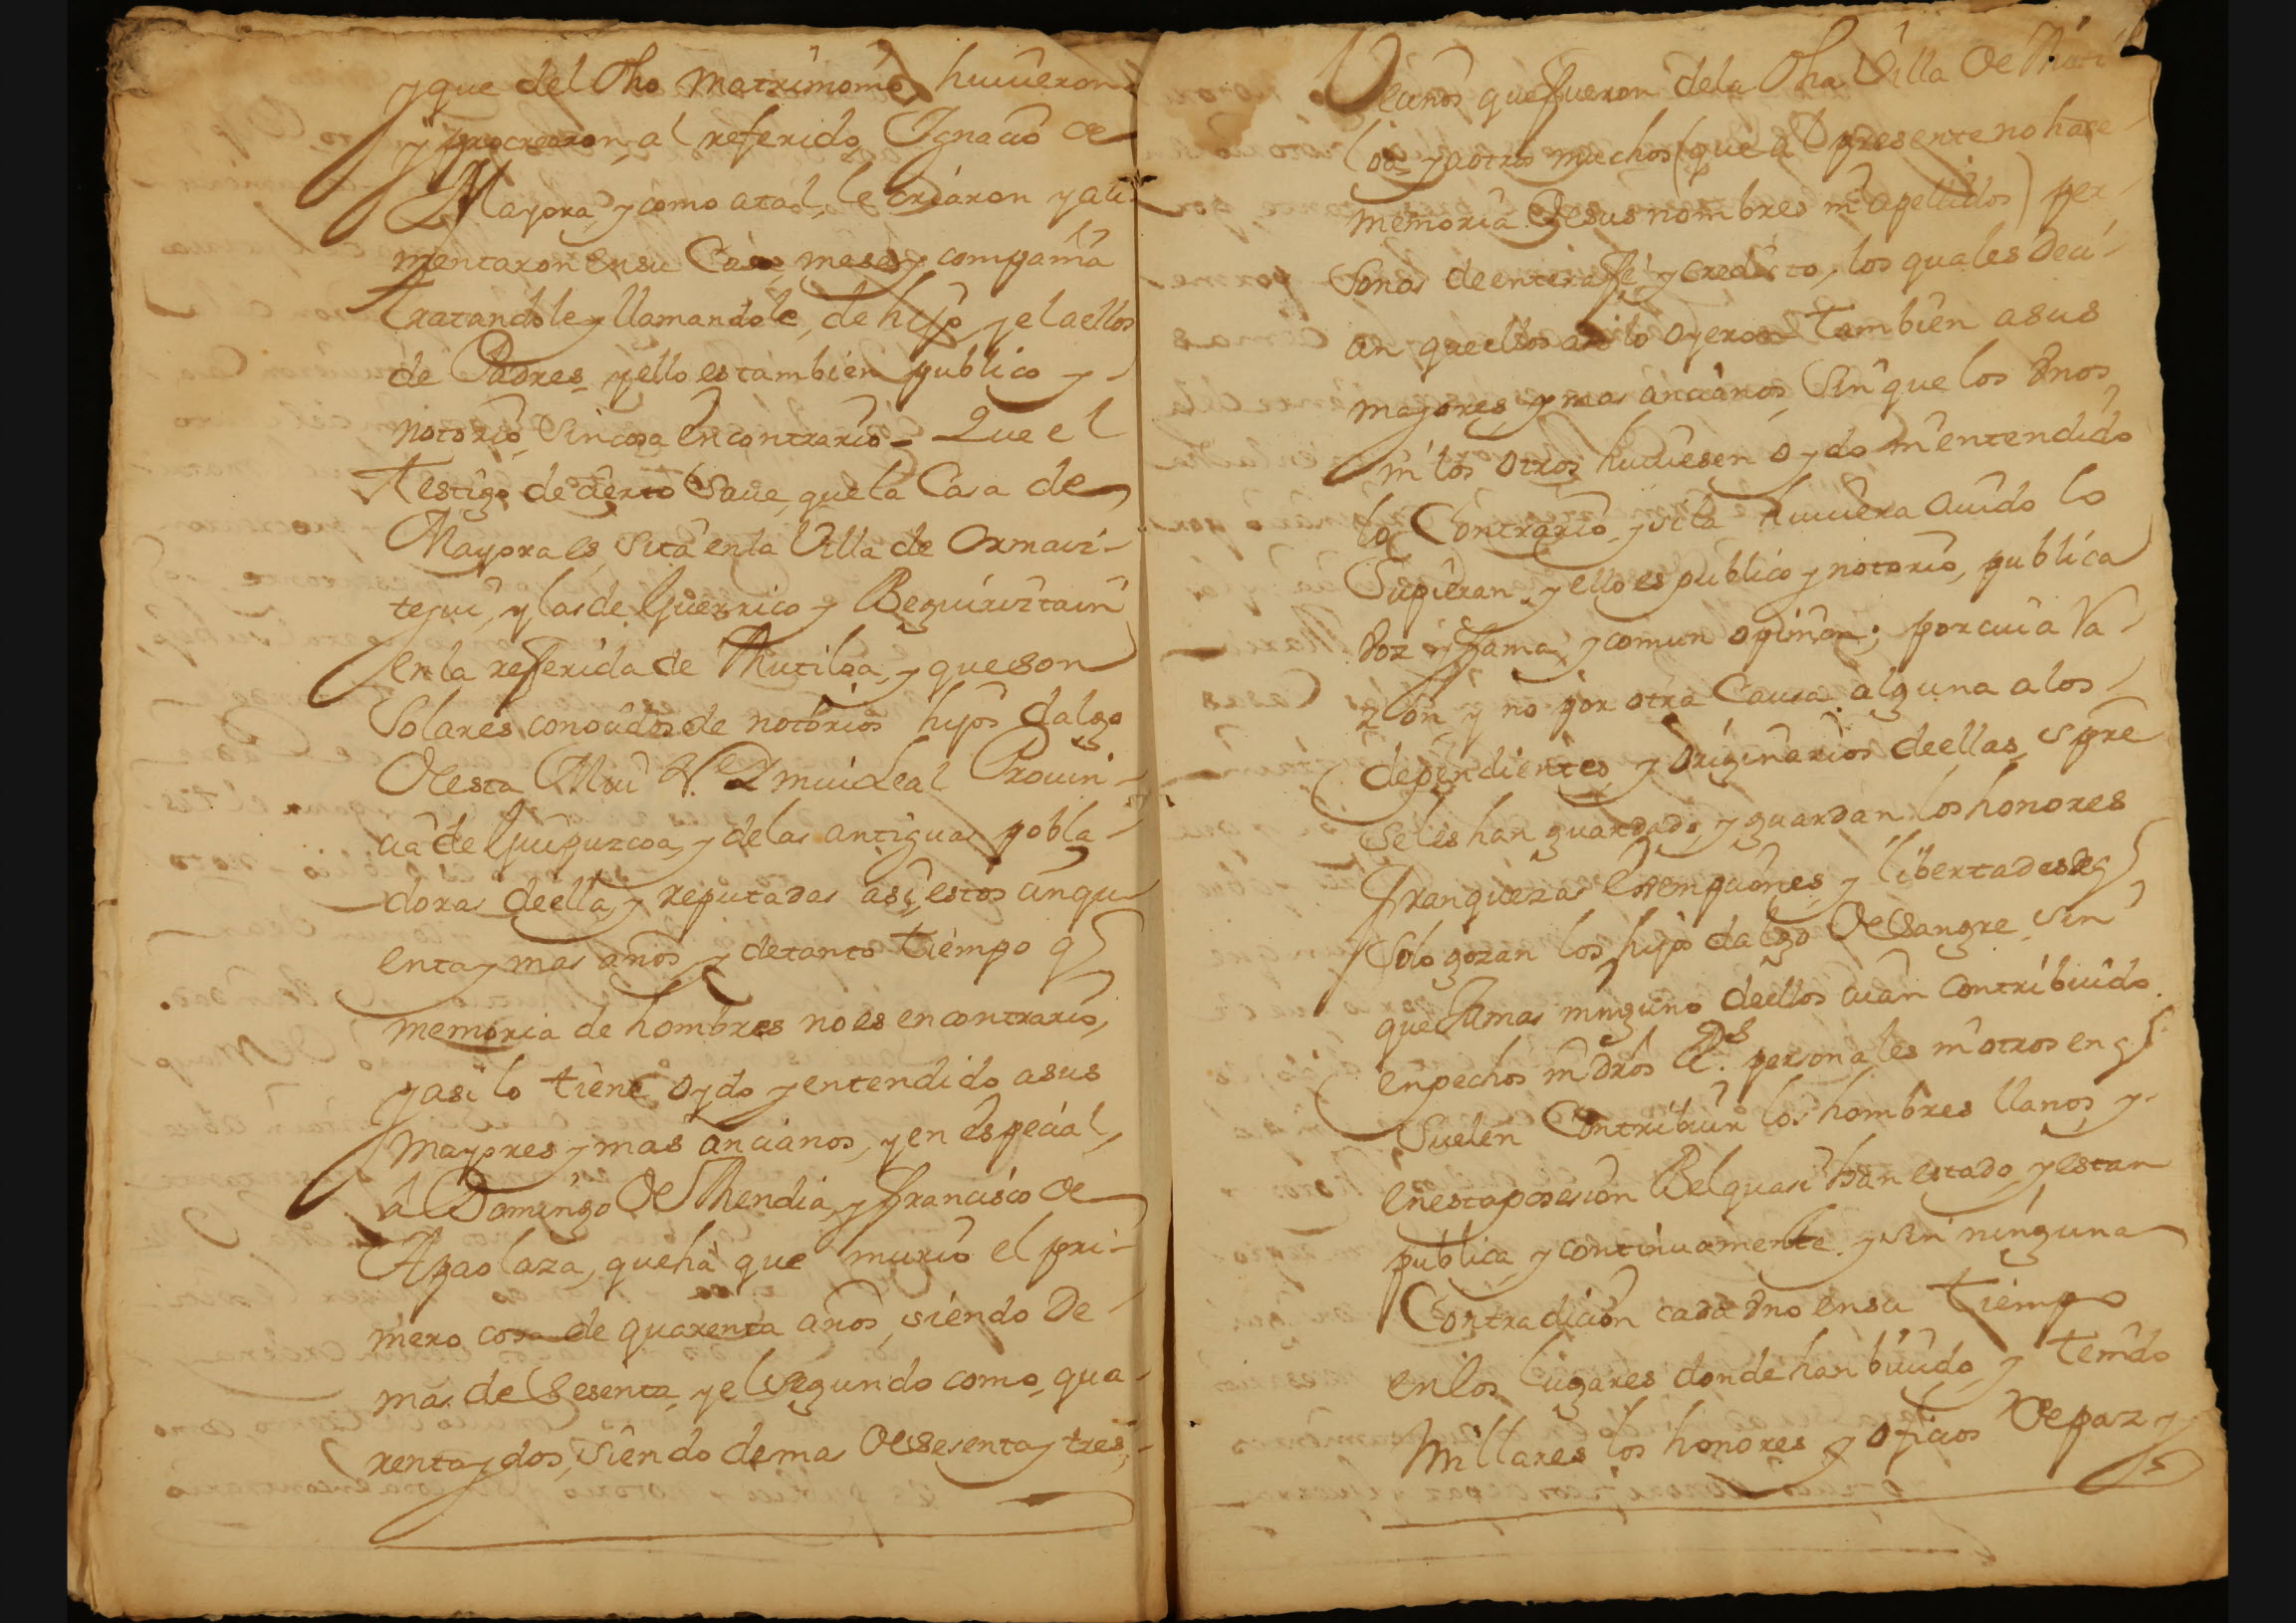 y que del dho Matrimonio huuieron
y procrearon, al referido Ignacio de
Mayora, y como atal, le criaron y ali-
mentaron en su Casa, mesa y compañia
tratandole y llamandole, de hijo y el a ellos
de Padres, y ello es tambien publico y
notorio, sin cosa en contrario = Que el
testigo de cierto saue, que la Casa de
Mayora es sita en la Villa de Ormaiz-
tegui, y las de Guerrico y Beguiriztain
en la referida de Mutiloa, y que son
Solares conocidos de notorios hijos dalgo
de esta Mui N. Y mui Leal Prouin-
cia de Guipuzcoa, y de las antiguas pobla-
doras de ella, y reputadas asi, estos cinqu-
enta y mas años y de tanto tiempo q
memoria de hombres no es en contrario,
y asi lo tiene oydo y entendido a sus
mayores y mas ancianos, y en especial,
â Domingo de Rhendia, y Francisco de
Apaolaza, que ha que murio el pri-
mero cosa de quarenta años, siendo de
mas de sesenta, y el segundo como qua-
renta y dos, siendo de mas de sesenta y tres,
Vecinos que fueron de la dha Villa de Muti
loa, y a otros muchos (que al presente no hace
memoria de sus nombres ni apellidos) per-
sonas de entera fé, y credito, los quales deci-
an que ellos asi lo oyeron tambien a sus
mayores, y mas ancianos, sin que los vnos
ni los otros huuiesen oydo ni entendido
lo Contrario, y si la huuiera auido lo
Supieran, y ello es publico y notorio, publica
voz y fama, y comun opinion; por cuia ra-
zon, y no por otra Causa alguna a los
dependientes y originarios de ellas, spre
se les han guardado, y guardan los honores
franquezas Exempciones, y libertades de q
solo gozan los hijos dalgo de Sangre, sin
que Jamas ninguno de ellos aian contribuido
en pechos ni dros Rs. personales ni otros en q
suelen Contribuir los hombres llanos, y
en esta posesion Vel quasi han estado y estan
publica, y continuamente, y sin ninguna
Contradicion cada vno en su tiempo
en los lugares donde han biuido, y tenido
Millares los honores, y oficios de paz y